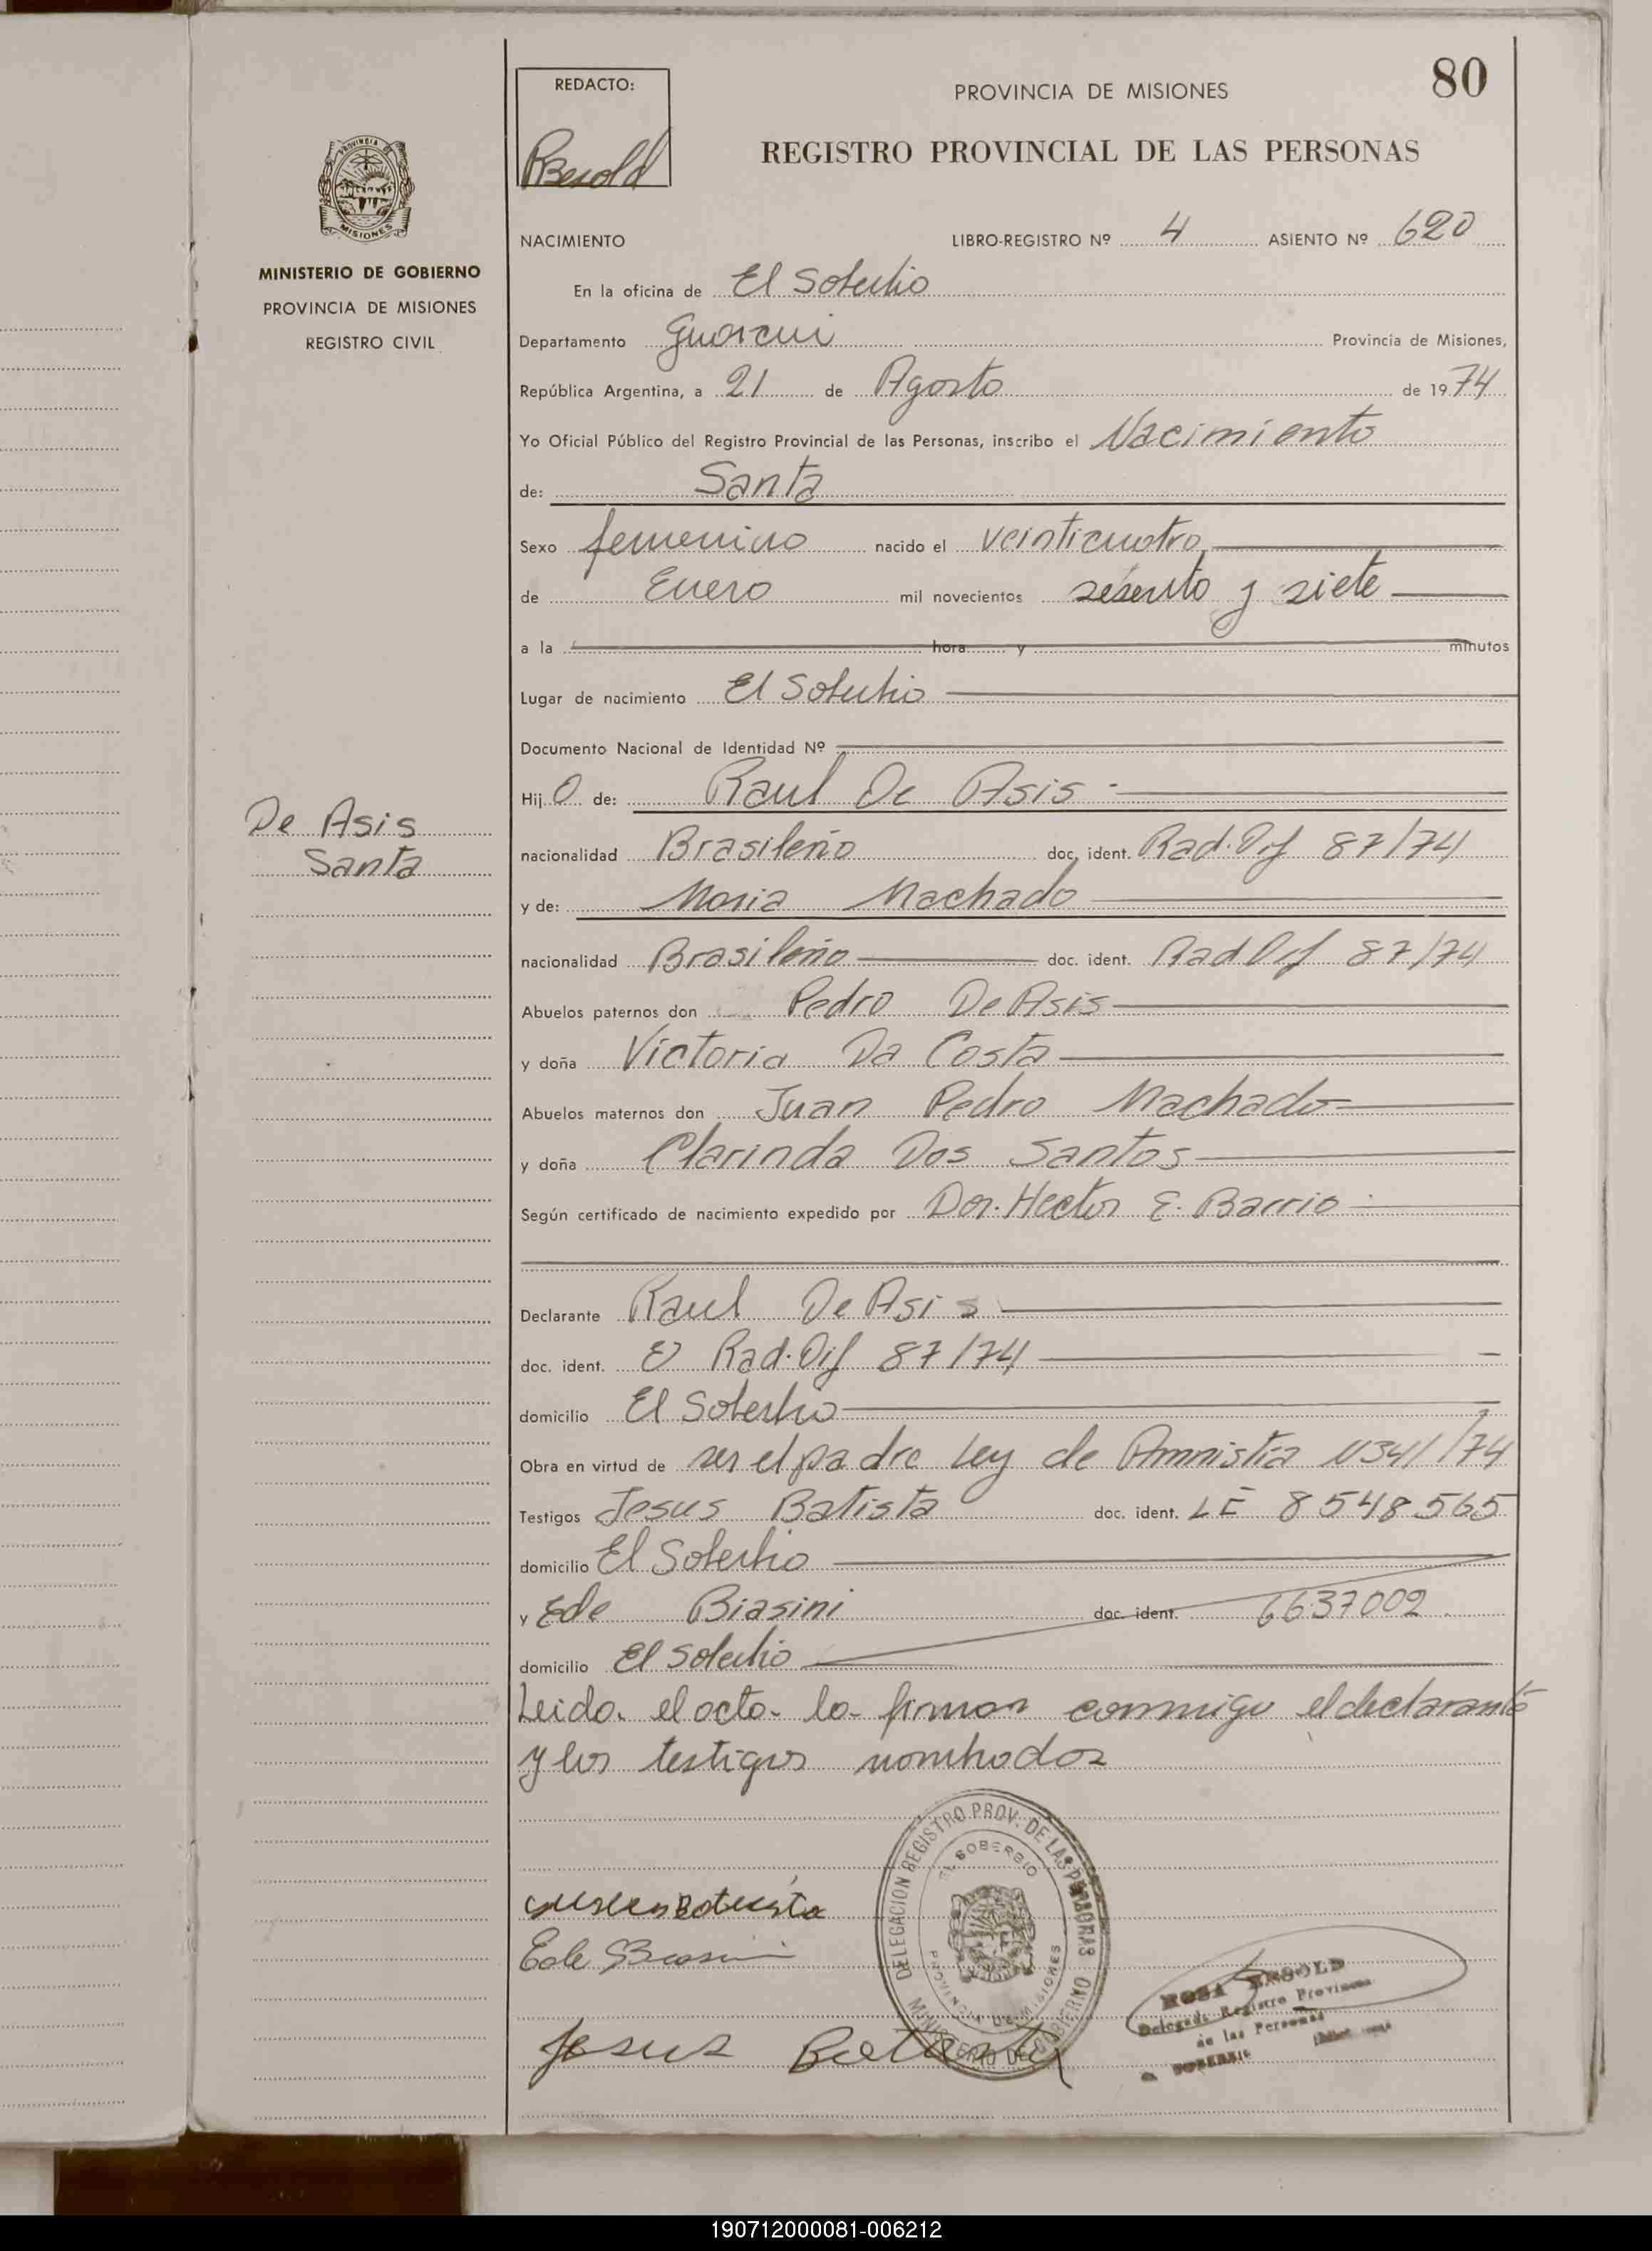 80
REDACTO:
Besold
PROVINCIA DE MISIONES
REGISTRO PROVINCIAL DE LAS PERSONAS
MISIONES
MINISTERIO DE GOBIERNO
PROVINCIA DE MISIONES
REGISTRO CIVIL
NACIMIENTO LIBRO-REGISTRO Nº 4 ASIENTO Nº 620
En la oficina de El Soberbio
Departamento Guarani Provincia de Misiones,
República Argentina, a 21 de Agosto de 1974
Yo Oficial Público del Registro Provincial de las Personas, inscribo el Nacimiento
de: Santa
Sexo femenino nacido el veinticuatro
de Enero mil novecientos sesenta y siete
a la hora y minutos
Lugar de nacimiento El Soberbio
Documento Nacional de Identidad Nº
Hijo de: Raul De Asis
De Asis
Santa
nacionalidad Brasileño doc. ident. Rad. Dif 87/74
y de: Maria Machado
nacionalidad Brasileño doc. ident. Rad Dif 87/74
Abuelos paternos don Pedro De Asis
y doña Victoria Da Costa
Abuelos maternos don Juan Pedro Machado
y doña Clarinda Dos Santos
Según certificado de nacimiento expedido por Dor. Hector E. Barrio
Declarante Raul De Asis
doc. ident. Rad. Dif 87/74
domicilio El Soberbio
Obra en virtud de ser el padre Ley de Amnistia N341/74
Testigos Jesus Batista doc. ident. LE 8548565
domicilio El Soberbio
y Ede Biasini doc. ident. 6637002
domicilio El Soberbio
Leida el acta la firman conmigo el declarante
y los testigos nombrados
DELEGACION REGISTRO PROV. DE LAS PERSONAS
EL SOBERBIO
PROVINCIA DE MISIONES
MINISTERIO DE GOBIERNO
Ede Biasini
Jesus Batista
ROSA BESOLD
Delegada Registro Provincial
de las Personas
EL SOBERBIO
190712000081-006212